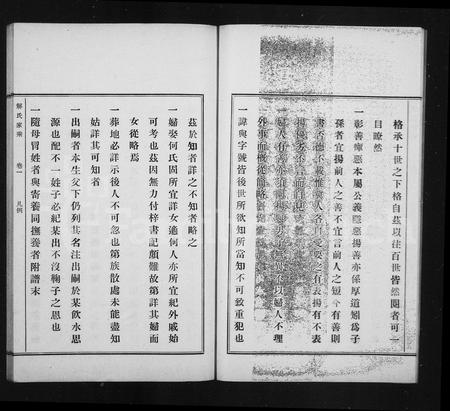 格承十世之下格自茲以注百世皆然閱者可一
目瞭然
一彰善癉惡本屬公義隱惡揚善亦係厚道矧爲子
孫者宜揚前人之善不宜言前人之短今有善則
書否德不載惟婦人各自受妻之有表揚有不表
婦人不理
外事而概從簡略
一諱與字號皆後世所欲知所當知不可致重犯也
茲於知者詳之不知者略之
一婦娶何氏固所宜詳女適何人亦所宜紀外戚始
可考也茲因無力付梓書記頗難故第詳其婦而
女從略焉
一葬地必詳示後人不可忽也第族散處未能盡知
姑詳其可知者
一出嗣者本生父下仍列其名注出嗣於某飲水思
源也配不一姓子必紀某出不沒鞠子之恩也
一隨母冒姓者與寄養同撫養者附譜末
解氏家乘
卷一
凡例